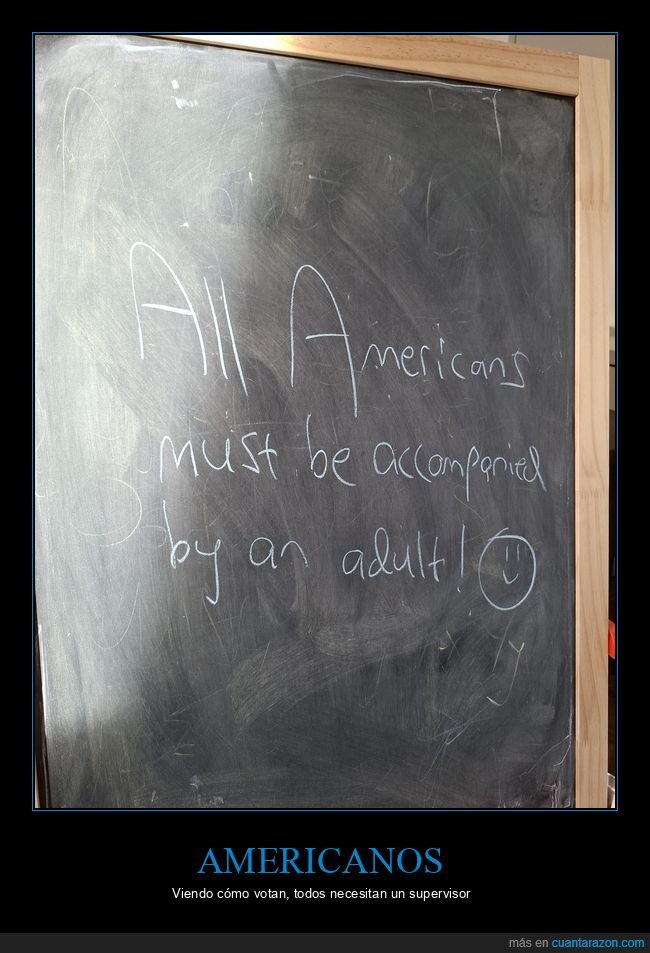 All Americans
must be accompanied
by an adult!
AMERICANOS
Viendo cómo votan, todos necesitan un supervisor
más en cuantarazon.com